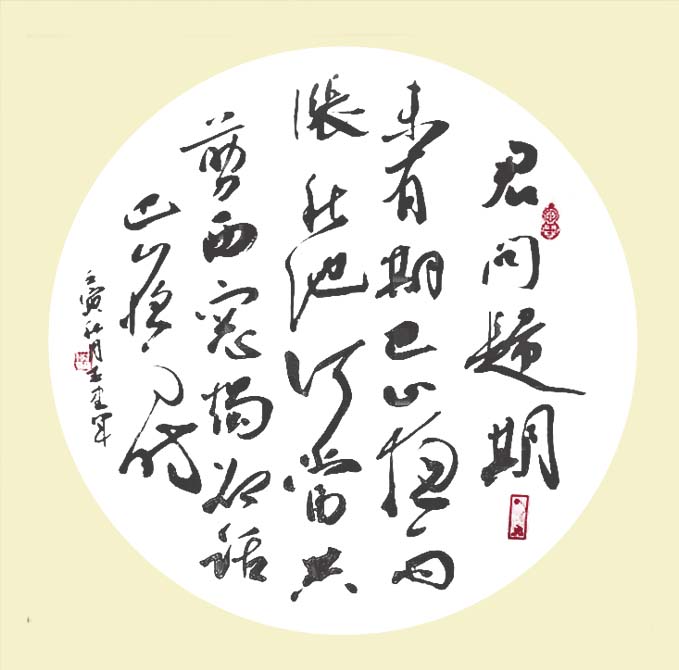 君問歸期
未有期巴山夜雨
漲秋池何當共
剪西窗燭却話
巴山夜雨時
壬寅秋月